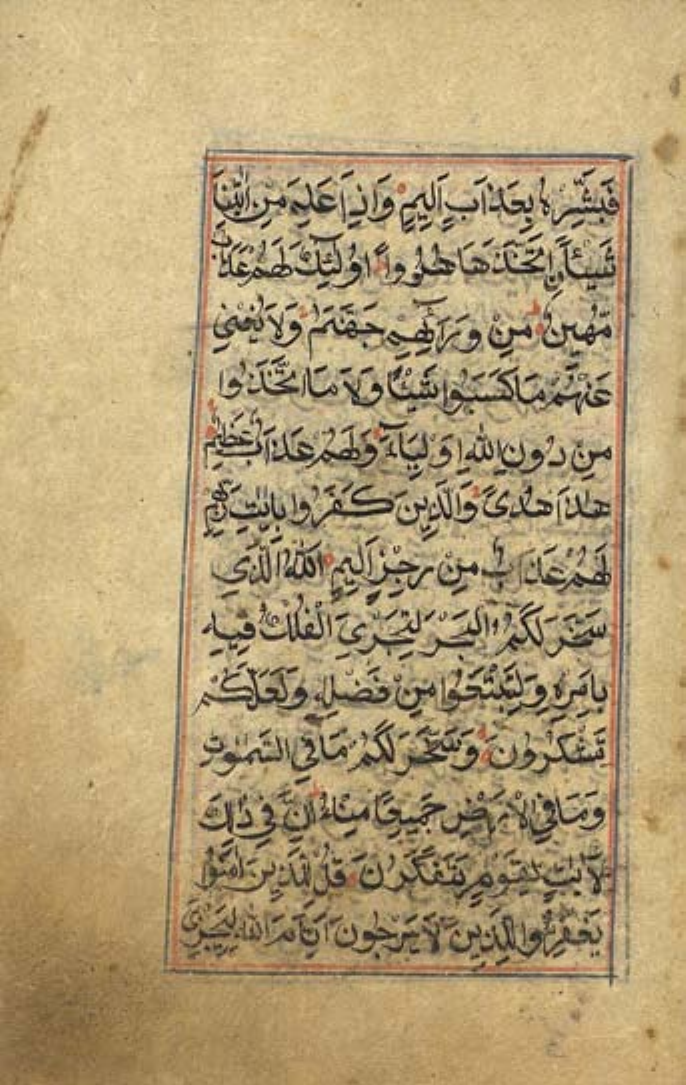 فَبَشِّرْهُ بِعَذَابٍ اَلِيمٍ وَاِذَا عَلِمَ مِنْ اٰيٰتِنَا
شَيْـًٔا اتَّخَذَهَا هُزُوًا اُولٰٓئِكَ لَهُمْ عَذَابٌ
مُّهِينٌ مِنْ وَرَآئِهِمْ جَهَنَّمُ وَلَا يُغْنِي
عَنْهُمْ مَا كَسَبُوا شَيْـًٔا وَلَا مَا اتَّخَذُوا
مِنْ دُونِ اللّٰهِ اَوْلِيَآءَ وَلَهُمْ عَذَابٌ عَظِيمٌ
هٰذَا هُدًى وَالَّذِينَ كَفَرُوا بِاٰيٰتِ رَبِّهِمْ
لَهُمْ عَذَابٌ مِنْ رِجْزٍ اَلِيمٍ اَللّٰهُ الَّذِي
سَخَّرَ لَكُمُ الْبَحْرَ لِتَجْرِيَ الْفُلْكُ فِيهِ
بِاَمْرِهِ وَلِتَبْتَغُوا مِنْ فَضْلِهِ وَلَعَلَّكُمْ
تَشْكُرُونَ وَسَخَّرَ لَكُمْ مَا فِي السَّمٰوٰتِ
وَمَا فِي الْاَرْضِ جَمِيعًا مِنْهُ اِنَّ فِي ذٰلِكَ
لَاٰيٰتٍ لِقَوْمٍ يَتَفَكَّرُونَ قُلْ لِلَّذِينَ اٰمَنُوا
يَغْفِرُوا لِلَّذِينَ لَا يَرْجُونَ اَيَّامَ اللّٰهِ لِيَجْزِيَ